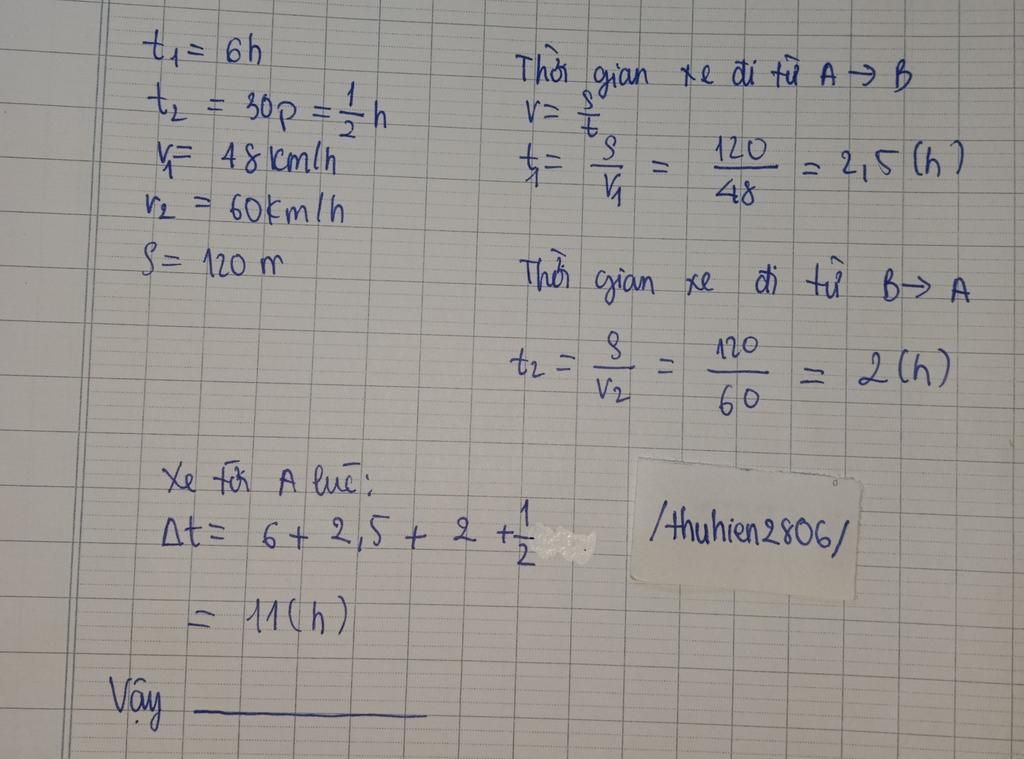 t₁ = 6h
t₂ = 30p = 1/2 h
v₁ = 48 km/h
v₂ = 60km/h
S = 120 m
Thời gian xe đi từ A → B
v = S/t
t₁ = S/v₁ = 120/48 = 2,5 (h)
Thời gian xe đi từ B → A
t₂ = S/v₂ = 120/60 = 2 (h)
Xe tới A lúc:
Δt = 6 + 2,5 + 2 + 1/2
= 11 (h)
/thuhien2806/
Vậy